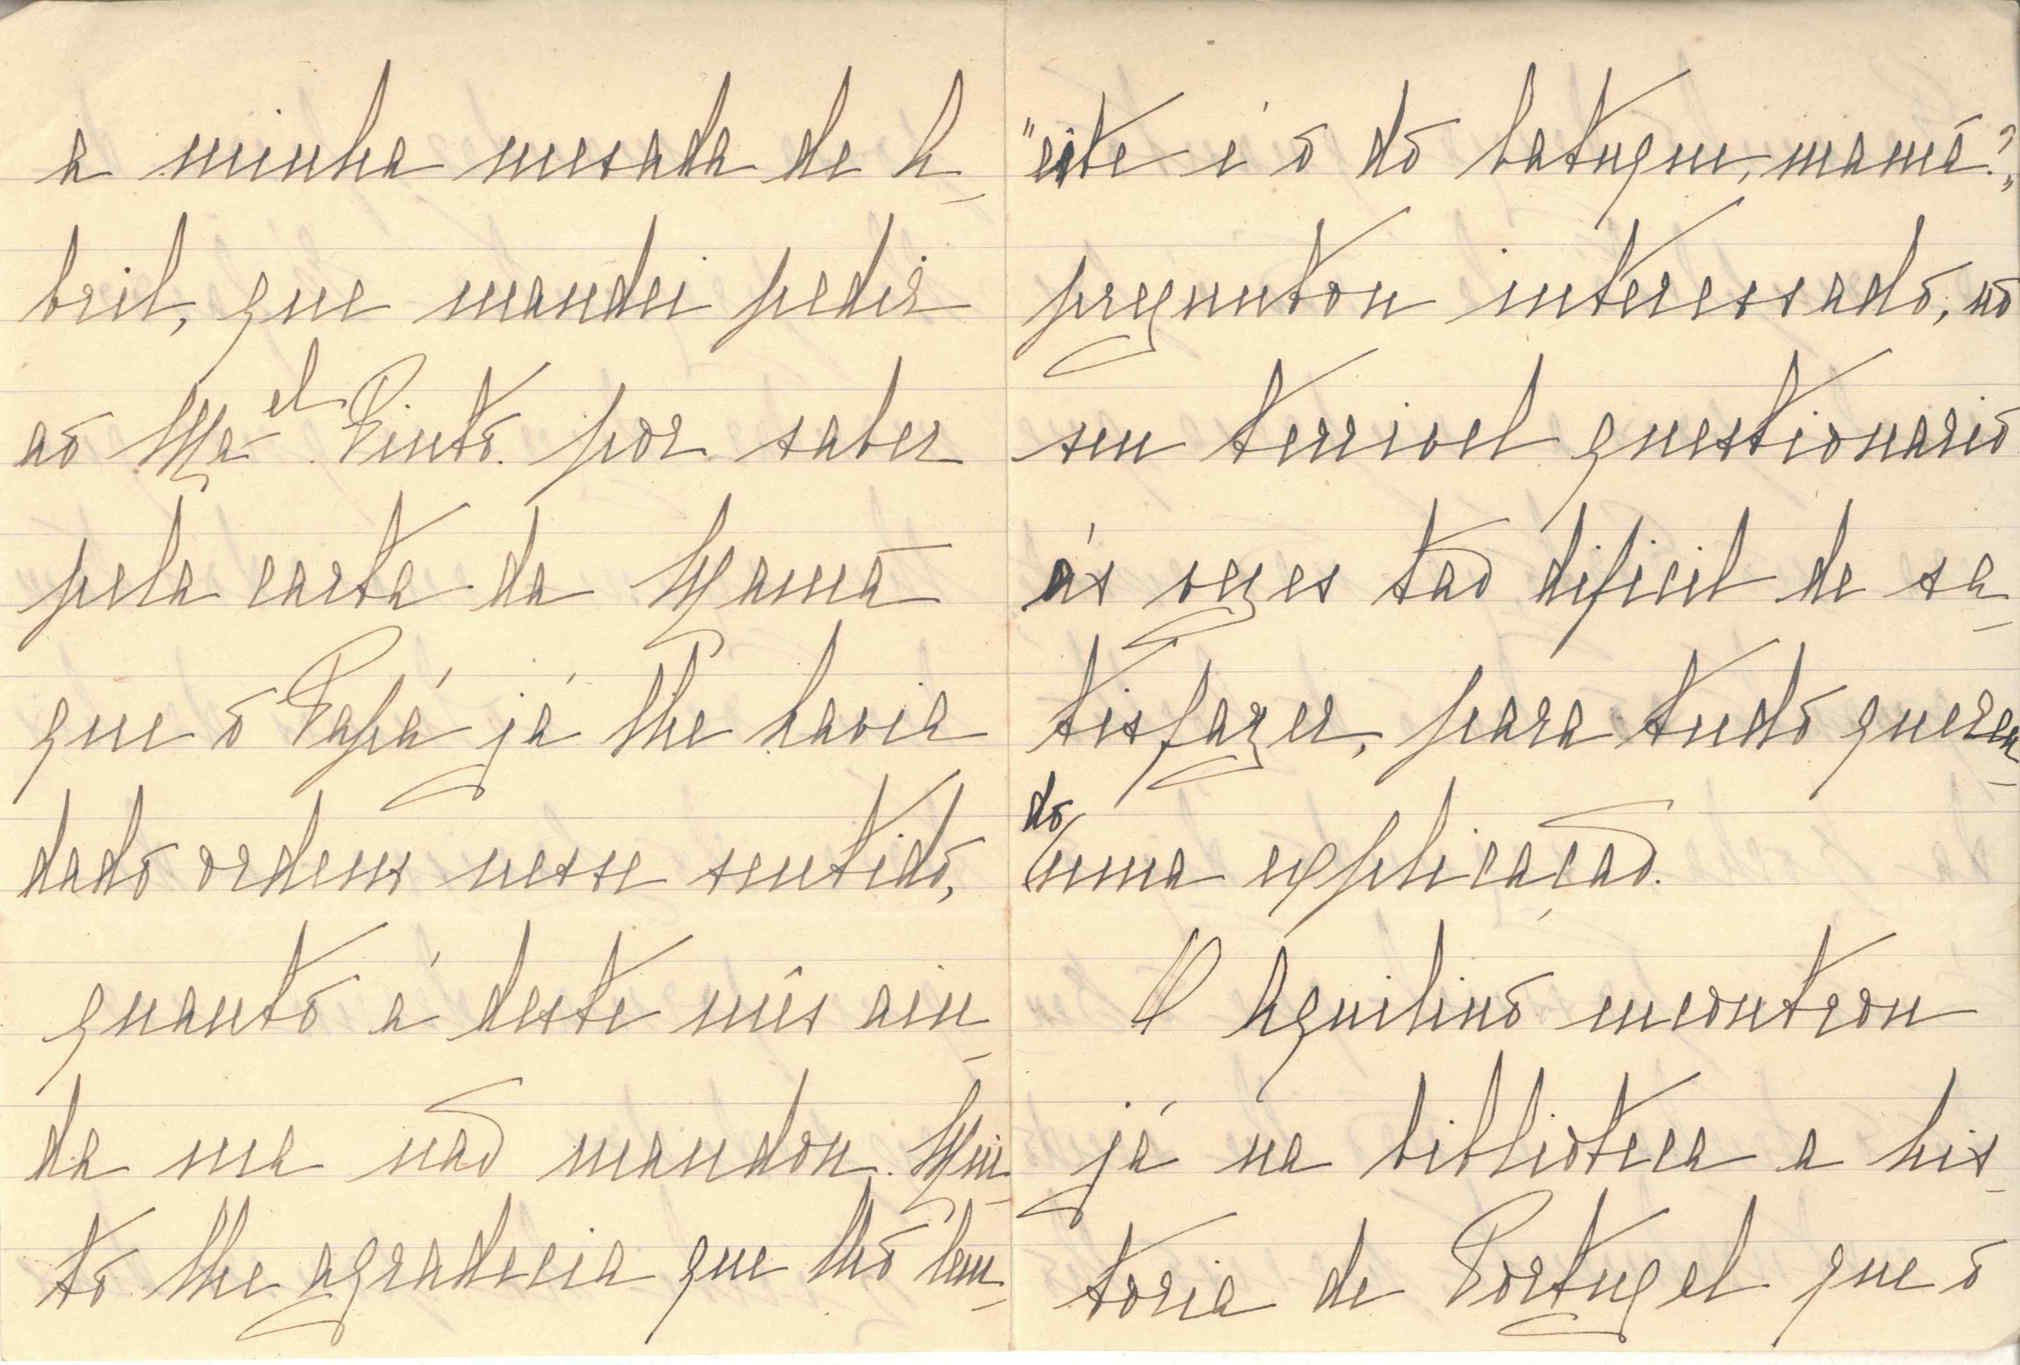 a minha mesada de A-
bril, que mandei pedir
ao Mael Pinto por saber
pela carta da Mamã
que o Papá já lhe havia
dado ordens nesse sentido,
quanto á deste mês ain-
da ma não mandou. Mui-
to lhe agradecia que lho lem-
"este é o do batuque, mamã?"
preguntou interessado, no
seu terrivel questionario
ás vezes tão dificil de sa-
tisfazer, para tudo queren-
do
uma explicação.
O Aquilino encontrou
já na biblioteca a his-
toria de Portugal que o